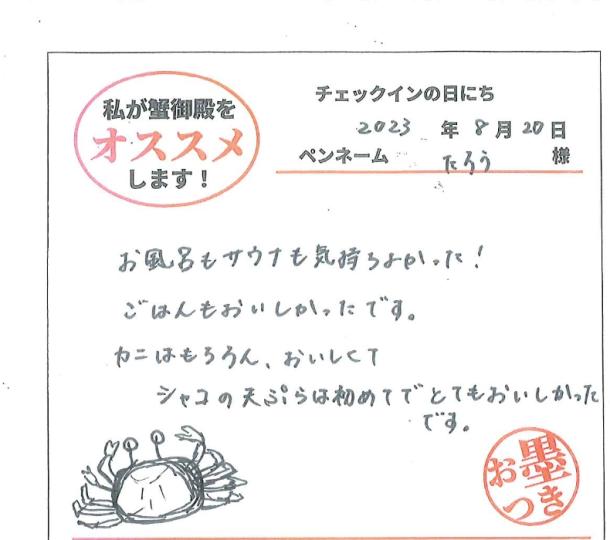 私が蟹御殿を
オススメ
します！
チェックインの日にち
2023 年 8 月 20 日
ペンネーム たろう 様
お風呂もサウナも気持ちよかった！
ごはんもおいしかったです。
カニはもちろん、おいしくて
シャコの天ぷらは初めてでとてもおいしかった
です。
お墨
つき